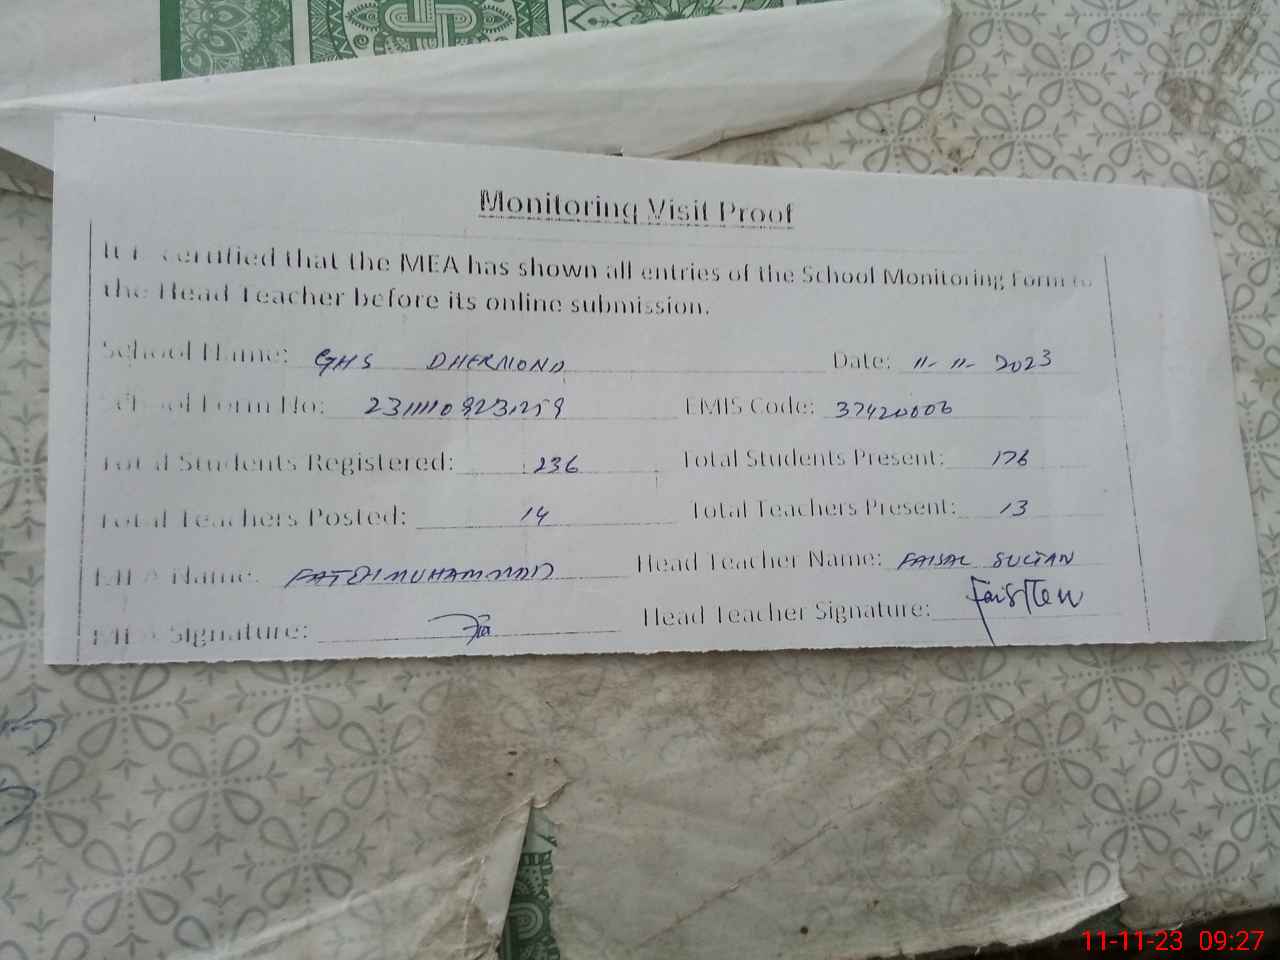 Monitoring Visit Proof
It is certified that the MEA has shown all entries of the School Monitoring Form to
the Head Teacher before its online submission.
School Name: GHS DHERMOND Date: 11-11-2023
School Form No: EMIS Code: 37420006
Total Students Registered: 236 Total Students Present: 176
Total Teachers Posted: 14 Total Teachers Present: 13
MEA Name: MUHAMMAD Head Teacher Name: FAISAL SULTAN
MEA Signature: Head Teacher Signature:
11-11-23 09:27